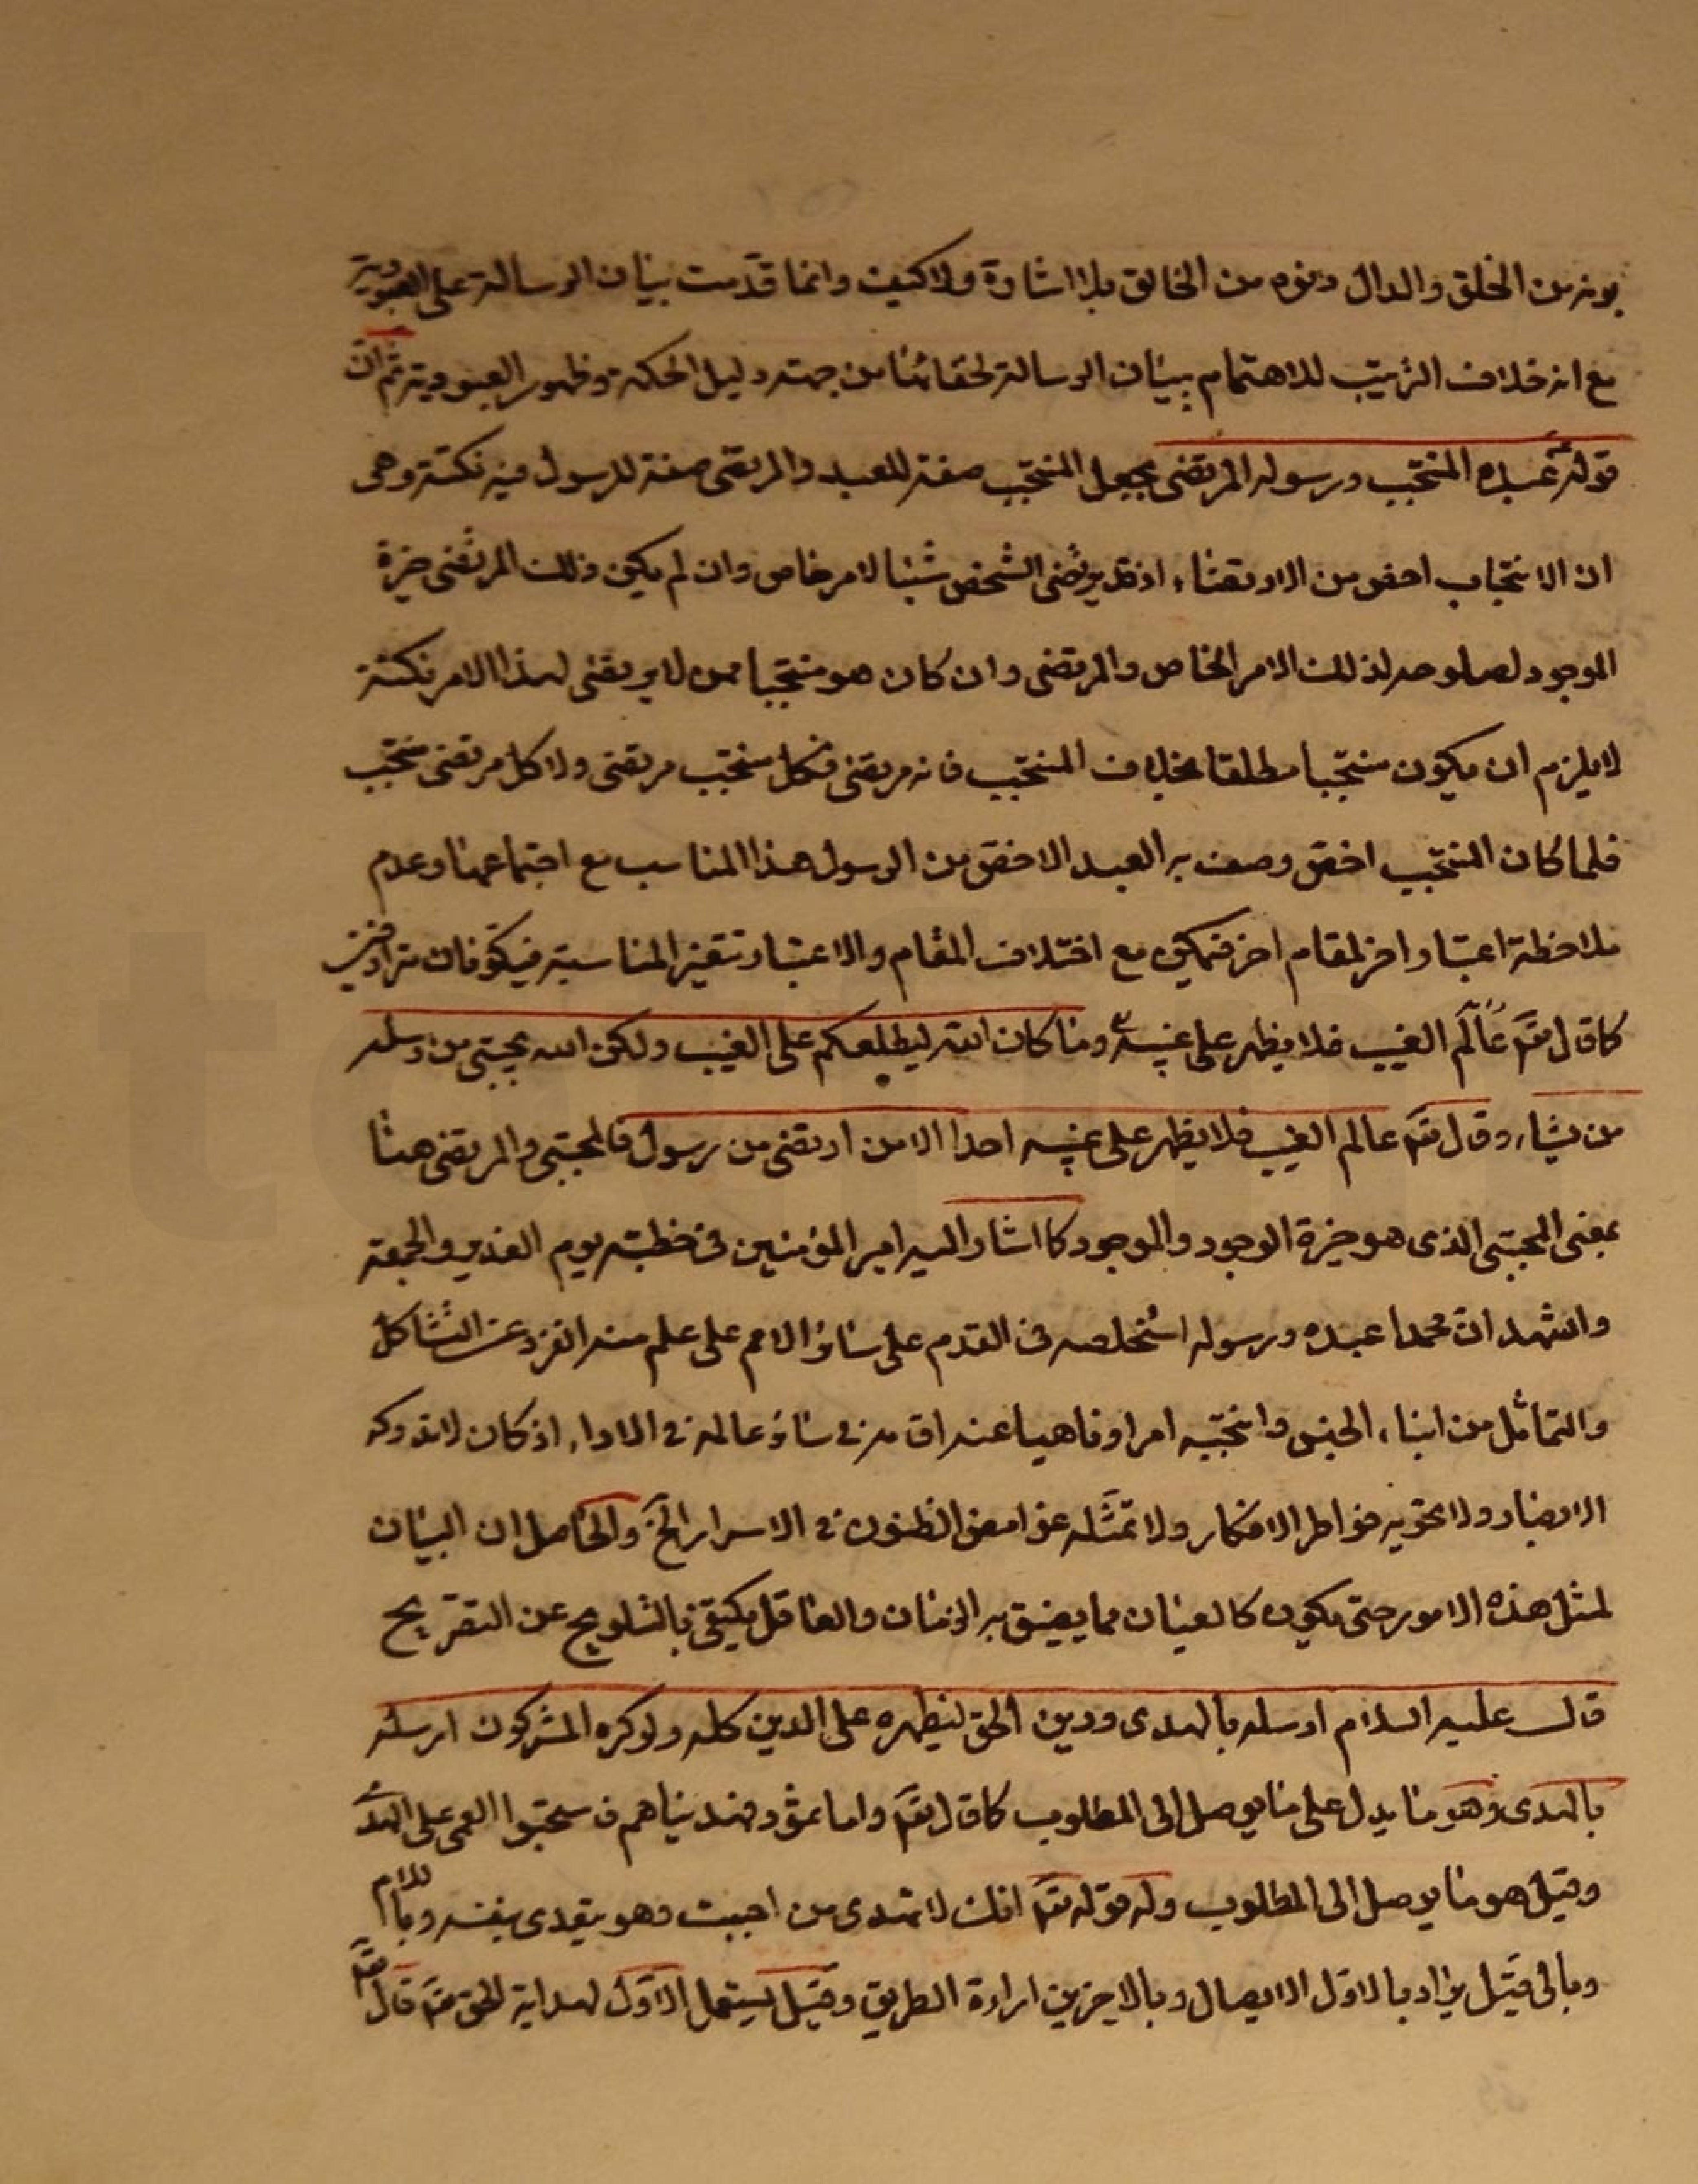 بونه من الخلق والدال دنوه من الخالق بلا اشارة ولا كيف وانما قدّمت بيان الرسالة على العبودية
مع انه خلاف الترتيب للاهتمام ببيان الرسالة لخفائها من جهة دليل الحكمة وظهور العبودية ثم انّ
قوله عبده المنتجب ورسوله المرتضى بجعل المنتجب صفة للعبد والمرتضى صفة للرسول فيه نكتة وهى
ان الانتجاب اخص من الارتضاء اذ قد يرتضى الشخص شيئا لامر خاص وان لم يكن ذلك المرتضى خيرة
الموجود لصلوحه لذلك الامر الخاص والمرتضى وان كان هو منتجبا ممن لا يرتضى لهذا الامر لكنه
لا يلزم ان يكون منتجبا مطلقا بخلاف المنتجب فانه مرتضى فكل منتجب مرتضى ولا كل مرتضى منتجب
فلما كان المنتجب اخص وصف به العبد الاخص من الرسول هذا المناسب مع اجتماعهما وعدم
ملاحظة اعتبار اخر لمقام اخر فيمكن مع اختلاف المقام والاعتبار تتغير المناسبة فيكونان مترادفين
كما قال تع عالم الغيب فلا يظهر على غيبه وما كان الله ليطلعكم على الغيب ولكن الله يجتبى من رسله
من يشاء وقال تع عالم الغيب فلا يظهر على غيبه احدا الا من ارتضى من رسول فالمجتبى والمرتضى هنا
بمعنى المجتبى الذى هو خيرة الوجود والموجود كما اشار اليه امير المؤمنين فى خطبته يوم الغدير والجمعة
واشهد انّ محمدا عبده ورسوله استخلصه فى القدم على سائر الامم على علم منه انفرد عن التشاكل
والتماثل من ابناء الجنس وانتجبه امرا وناهيا عنه اقامه فى سائر عالمه فى الاداء اذ كان لا تدركه
الابصار ولا تحويه خواطر الافكار ولا تمثّله غوامض الظنون فى الاسرار الخ والحاصل ان البيان
لمثل هذه الامور حتى يكون كالعيان مما يضيق به الزمان والعاقل يكتفى بالتلويح عن التصريح
قال عليه السلام ارسله بالهدى ودين الحق ليظهره على الدين كله ولو كره المشركون ارسله
بالهدى وهو ما يدل على ما يوصل الى المطلوب كما قال تع واما ثمود فهديناهم فاستحبوا العمى على الهدى
وقيل هو ما يوصل الى المطلوب وله قوله تع انك لا تهدى من احببت وهو يتعدى بنفسه وباللام
وبالى قيل يراد بالاوّل الايصال وبالاخيرين اراءة الطريق وقيل يستعمل الاوّل لهداية الحق تع قال تع